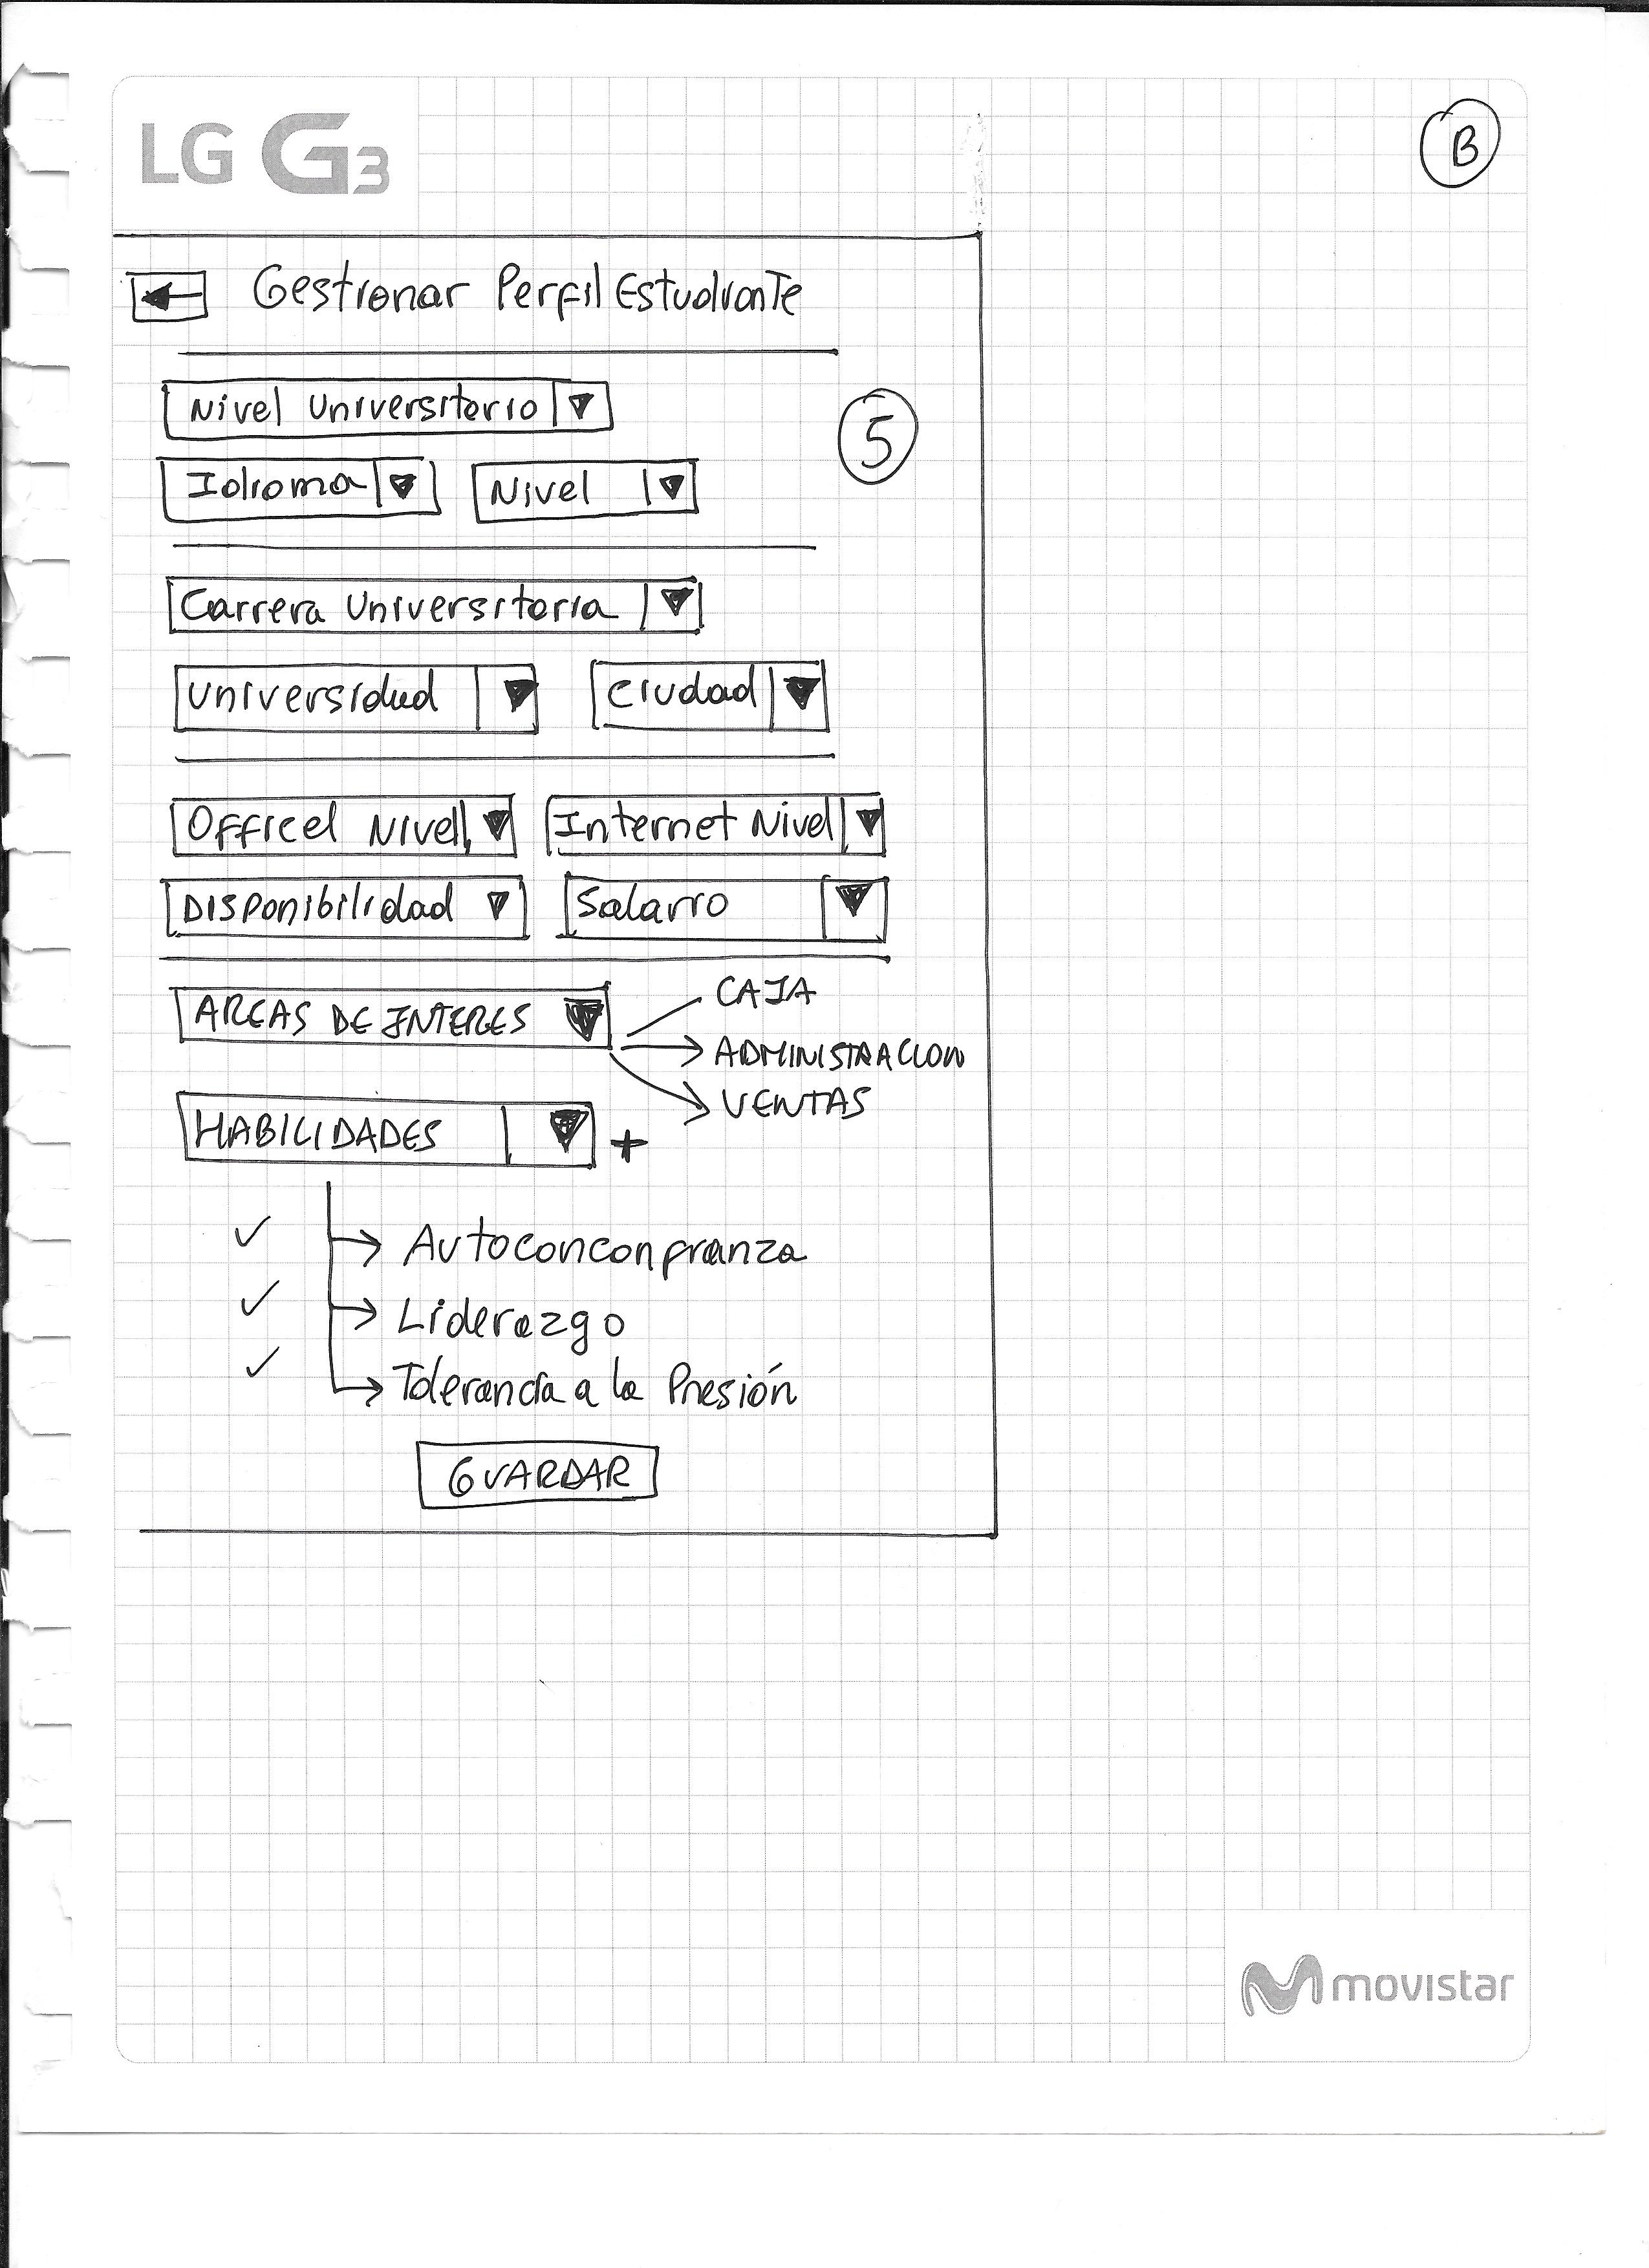 LG G3
B
Gestionar Perfil Estudiante
Nivel Universitario
5
Idioma Nivel
Carrera Universitaria
Universidad Ciudad
Officel Nivel Internet Nivel
Disponibilidad Salario
AREAS DE INTERES
CAJA
ADMINISTRACION
VENTAS
HABILIDADES +
Autoconconfianza
Liderazgo
Tolerancia a la Presión
GUARDAR
movistar